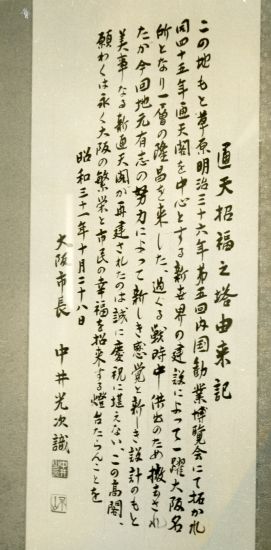 通天招福之塔由来記
この地もと草原明治三十六年第五回内国勧業博覧会にて拓かれ
同四十五年通天閣を中心とする新世界の建設によって一躍大阪名
所となり一層の隆昌を来した、過ぐる戦時中供出のため撤去され
たが今回地元有志の努力によって新しき感覚と新しき設計のもと
美事なる新通天閣が再建されたのは誠に慶祝に堪えない、この高閣、
願わくは永く大阪の繁栄と市民の幸福を招来する燈台たらんことを
昭和三十一年十月二十八日
大阪市長 中井光次識